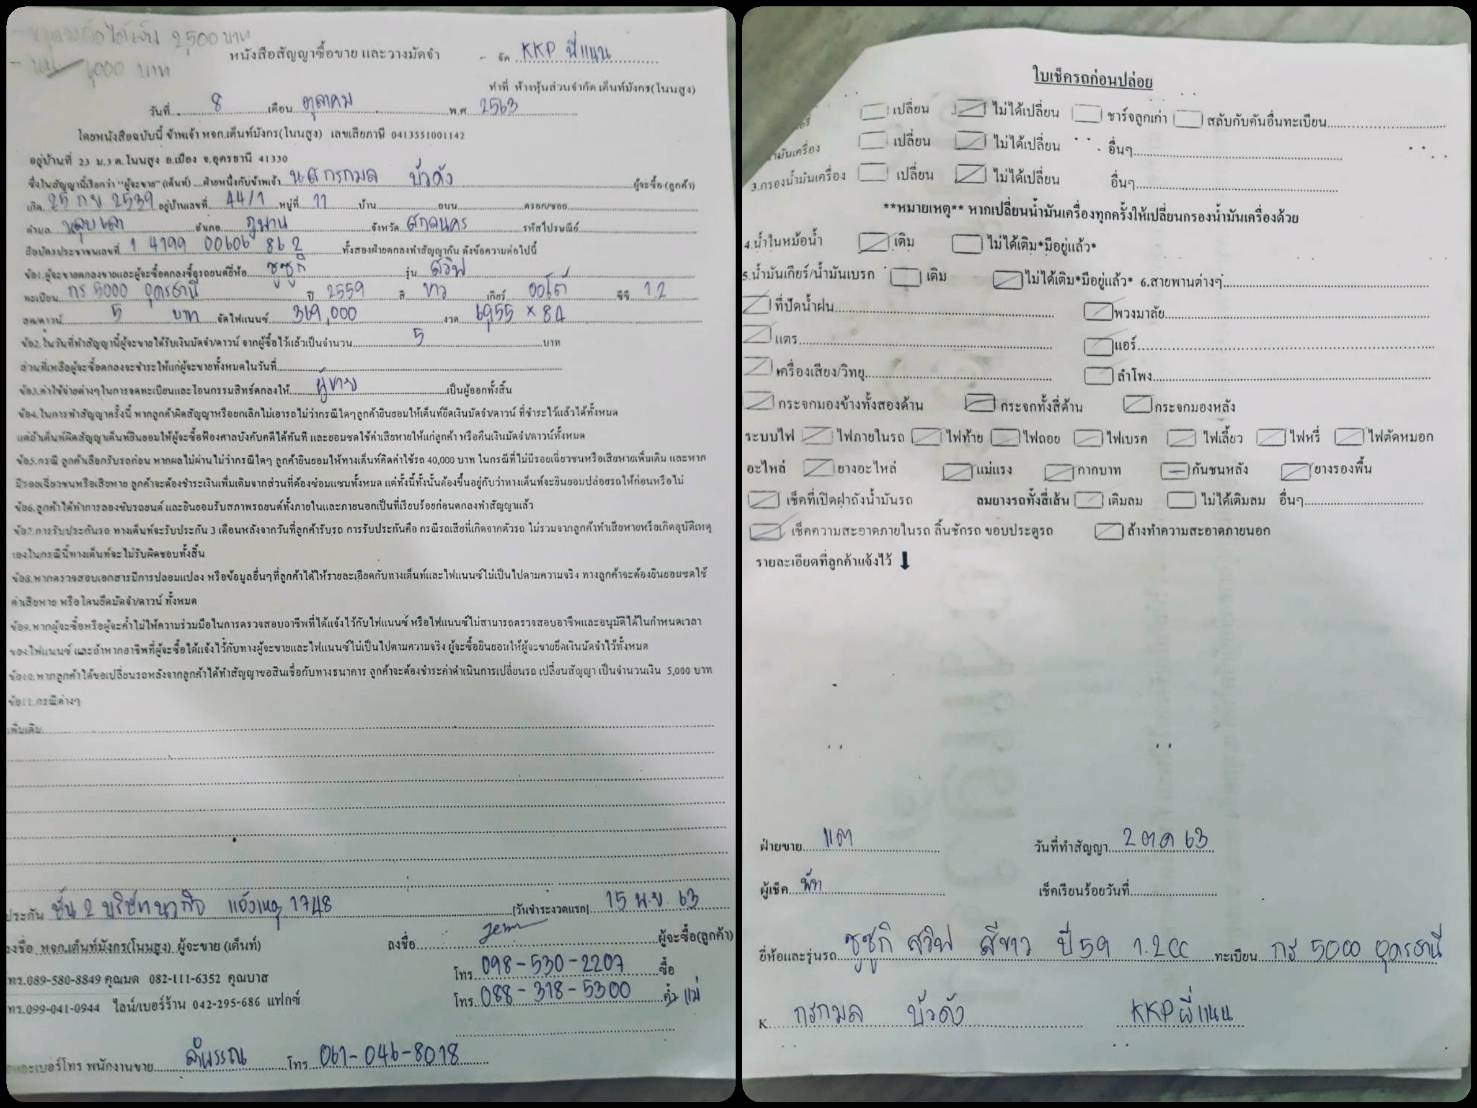 2,500 บาท
บาท
หนังสือสัญญาซื้อขาย และวางมัดจำ - จัด KKP พี่แนน
ทำที่ ห้างหุ้นส่วนจำกัด เต็นท์มังกร(โนนสูง)
วันที่ 8 เดือน ตุลาคม พ.ศ 2563
โดยหนังสือฉบับนี้ ข้าพเจ้า หจก.เต็นท์มังกร(โนนสูง) เลขเสียภาษี 0413551001142
อยู่บ้านที่ 23 ม.3 ต.โนนสูง อ.เมือง จ.อุดรธานี 41330
ซึ่งในสัญญานี้เรียกว่า "ผู้จะขาย"(เต็นท์) ฝ่ายหนึ่งกับข้าพเจ้า น.ส กรกมล บัวดัง ผู้จะซื้อ(ลูกค้า)
เกิด 25 ก.ย 2539 อยู่บ้านเลขที่ 44/1 หมู่ที่ 11 บ้าน ถนน ตรอก/ซอย
ตำบล หลุบเลา อำเภอ ภูพาน จังหวัด สกลนคร รหัสไปรษณีย์
ถือบัตรประชาชนเลขที่ 1 4799 00606 86 2 ทั้งสองฝ่ายตกลงทำสัญญากัน ดังข้อความต่อไปนี้
ข้อ1.ผู้จะขายตกลงขายและผู้จะซื้อตกลงซื้อรถยนต์ยี่ห้อ ซูซูกิ รุ่น สวิฟ
ทะเบียน กร 5000 อุดรธานี ปี 2559 สี ขาว เกียร์ ออโต้ ซีซี 1.2
สด/ดาวน์ 5 บาท จัดไฟแนนซ์ 369,000 งวด 6,955 x 84
ข้อ2.ในวันที่ทำสัญญานี้ผู้จะขายได้รับเงินมัดจำ/ดาวน์ จากผู้ซื้อไว้แล้วเป็นจำนวน 5 บาท
ส่วนที่เหลือผู้จะซื้อตกลงจะชำระให้แก่ผู้จะขายทั้งหมดในวันที่
ข้อ3.ค่าใช้จ่ายต่างๆในการจดทะเบียนและโอนกรรมสิทธิ์ตกลงให้ ผู้ขาย เป็นผู้ออกทั้งสิ้น
ข้อ4.ในการทำสัญญาครั้งนี้ หากลูกค้าผิดสัญญาหรือยกเลิกไม่เอารถ ไม่ว่ากรณีใดๆ ลูกค้ายินยอมให้เต็นท์ยึดเงินมัดจำ/ดาวน์ ที่ชำระไว้แล้วได้ทั้งหมด
แต่ถ้าเต็นท์ผิดสัญญาเต็นท์ยินยอมให้ผู้จะซื้อฟ้องศาลบังคับคดีได้ทันที และยอมชดใช้ค่าเสียหายให้แก่ลูกค้า หรือคืนเงินมัดจำ/ดาวน์ทั้งหมด
ข้อ5.กรณี ลูกค้าเลือกรับรถก่อน หากผลไม่ผ่านไม่ว่ากรณีใดๆ ลูกค้ายินยอมให้ทางเต็นท์คิดค่าใช้รถ 40,000 บาท ในกรณีที่ไม่มีรอยเฉี่ยวชนหรือเสียหายเพิ่มเติม และหาก
มีรอยเฉี่ยวชนหรือเสียหาย ลูกค้าจะต้องชำระเงินเพิ่มเติมจากส่วนที่ต้องซ่อมแซมทั้งหมด แต่ทั้งนี้ทั้งนั้นต้องขึ้นอยู่กับว่าทางเต็นท์จะยินยอมปล่อยรถให้ก่อนหรือไม่
ข้อ6.ลูกค้าได้ทำการลองขับรถยนต์ และยินยอมรับสภาพรถยนต์ทั้งภายในและภายนอกเป็นที่เรียบร้อยก่อนตกลงทำสัญญาแล้ว
ข้อ7.การรับประกันรถ ทางเต็นท์จะรับประกัน 3 เดือนหลังจากวันที่ลูกค้ารับรถ การรับประกันคือ กรณีรถเสียที่เกิดจากตัวรถ ไม่รวมจากลูกค้าทำเสียหายหรือเกิดอุบัติเหตุ
เองในกรณีนี้ทางเต็นท์จะไม่รับผิดชอบทั้งสิ้น
ข้อ8.หากตรวจสอบเอกสารมีการปลอมแปลง หรือข้อมูลอื่นๆที่ลูกค้าได้ให้รายละเอียดกับทางเต็นท์และไฟแนนซ์ไม่เป็นไปตามความจริง ทางลูกค้าจะต้องยินยอมชดใช้
ค่าเสียหาย หรือโดนยึดมัดจำ/ดาวน์ ทั้งหมด
ข้อ9.หากผู้จะซื้อหรือผู้จะค้ำไม่ให้ความร่วมมือในการตรวจสอบอาชีพที่ได้แจ้งไว้กับไฟแนนซ์ หรือไฟแนนซ์ไม่สามารถตรวจสอบอาชีพและอนุมัติได้ในกำหนดเวลา
ของไฟแนนซ์ และถ้าหากอาชีพที่ผู้จะซื้อได้แจ้งไว้กับทางผู้จะขายและไฟแนนซ์ไม่เป็นไปตามความจริง ผู้จะซื้อยินยอมให้ผู้จะขายยึดเงินมัดจำไว้ทั้งหมด
ข้อ10.หากลูกค้าได้ขอเปลี่ยนรถหลังจากลูกค้าได้ทำสัญญาขอสินเชื่อกับทางธนาคาร ลูกค้าจะต้องชำระค่าดำเนินการเปลี่ยนรถ เปลี่ยนสัญญา เป็นจำนวนเงิน 5,000 บาท
ข้อ11.กรณีต่างๆ
เพิ่มเติม
ประกัน ชั้น 2 บริษัท นวกิจ แจ้งเหตุ 1748 (วันชำระงวดแรก) 15 พ.ย. 63
ลงชื่อ หจก.เต็นท์มังกร(โนนสูง) ผู้จะขาย (เต็นท์) ลงชื่อ ผู้จะซื้อ(ลูกค้า)
โทร.089-580-8849 คุณมด 082-111-6352 คุณบาส โทร. 098-530-2207 ซื้อ
โทร.099-041-0944 ไลน์/เบอร์ร้าน 042-295-686 แฟกซ์ โทร. 088-318-5300 ค้ำ แม่
และเบอร์โทร พนักงานขาย ลำพรรณ โทร 061-046-8018
ใบเช็ครถก่อนปล่อย
เปลี่ยน ไม่ได้เปลี่ยน ชาร์จลูกเก่า สลับกับคันอื่นทะเบียน
น้ำมันเครื่อง เปลี่ยน ไม่ได้เปลี่ยน อื่นๆ
3.กรองน้ำมันเครื่อง เปลี่ยน ไม่ได้เปลี่ยน อื่นๆ
**หมายเหตุ** หากเปลี่ยนน้ำมันเครื่องทุกครั้งให้เปลี่ยนกรองน้ำมันเครื่องด้วย
4.น้ำในหม้อน้ำ เติม ไม่ได้เติม*มีอยู่แล้ว*
5.น้ำมันเกียร์/น้ำมันเบรก เติม ไม่ได้เติม*มีอยู่แล้ว* 6.สายพานต่างๆ
ที่ปัดน้ำฝน พวงมาลัย
แตร แอร์
เครื่องเสียง/วิทยุ ลำโพง
กระจกมองข้างทั้งสองด้าน กระจกทั้งสี่ด้าน กระจกมองหลัง
ระบบไฟ ไฟภายในรถ ไฟท้าย ไฟถอย ไฟเบรค ไฟเลี้ยว ไฟหรี่ ไฟตัดหมอก
อะไหล่ ยางอะไหล่ แม่แรง กากบาท กันชนหลัง ยางรองพื้น
เช็คที่เปิดฝาถังน้ำมันรถ ลมยางรถทั้งสี่เส้น เติมลม ไม่ได้เติมลม อื่นๆ
เช็คความสะอาดภายในรถ ลิ้นชักรถ ขอบประตูรถ ล้างทำความสะอาดภายนอก
รายละเอียดที่ลูกค้าแจ้งไว้
ฝ่ายขาย แต วันที่ทำสัญญา 2 ตค 63
ผู้เช็ค พัท เช็คเรียบร้อยวันที่
ยี่ห้อและรุ่นรถ ซูซูกิ สวิฟ สีขาว ปี 59 1.2 CC ทะเบียน กร 5000 อุดรธานี
K กรกมล บัวดัง KKP พี่แนน